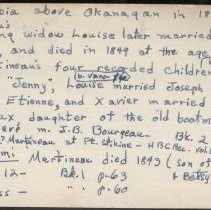 bia above Okanagan in 18
ng widow Louise later married
, and died in 1849 at the age
tineau's four recorded childre
b. Vanc
"Jenny", Louise married Joseph
Etienne, and Xavier married
ux, daughter of the old boatm
eré m. J.B. Bourgeau- Bk. 2
? Martineau at Ft. Stikine - H B C Rec. Vol.
mi: Martineau died 1843 (son of
12- Bk. 1 p. 63 & Betsy
ss - " p. 60